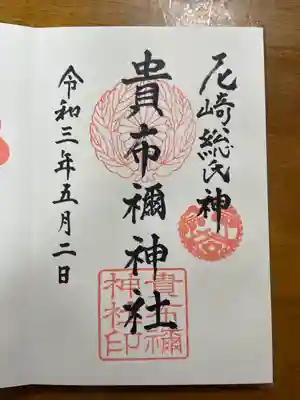 尼崎總氏神
貴布禰神社
令和三年五月二日
貴布禰
神社印